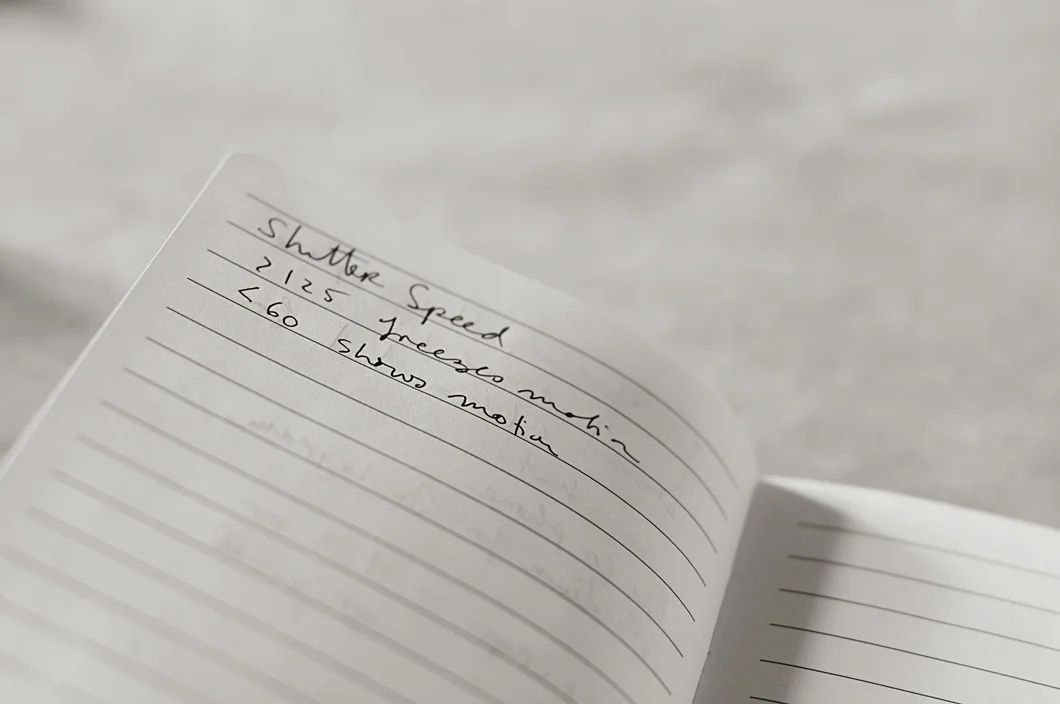 Shutter Speed
>125 freezes motion
<60 shows motion